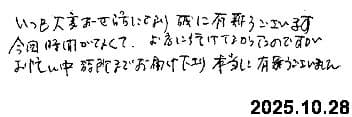 いつも大変お世話になり 誠に有難うございます
今回 時間がなくて、お店に行けてなかったのですが
お忙しい中 診所までお届け下さり 本当に有難うございました
2025.10.28